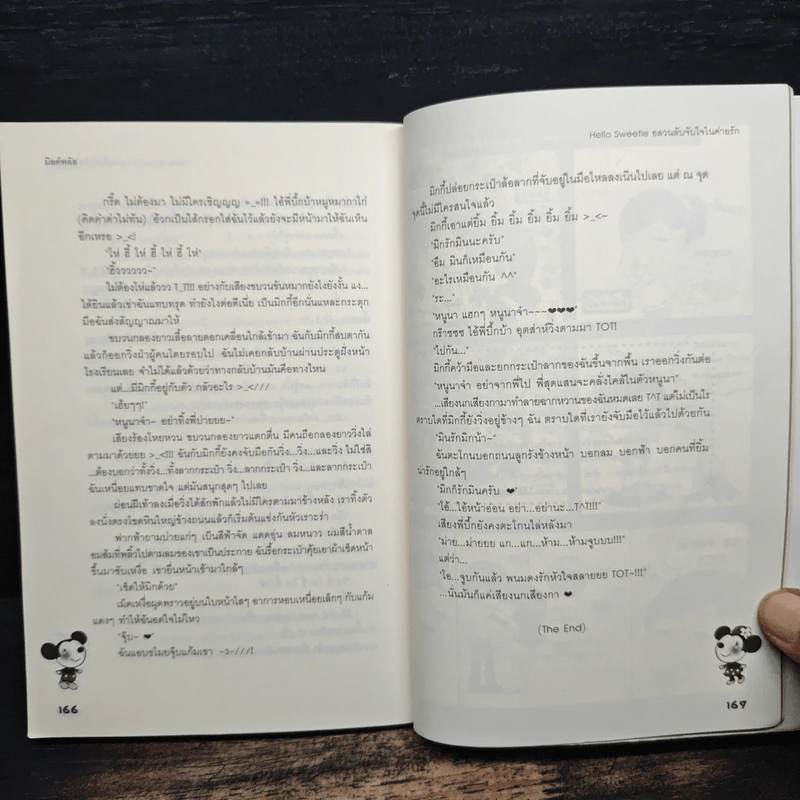 มิลค์พลัส
กรี๊ด ไม่ต้องมา ไม่มีใครเชิญญญ =_=!!! ไอ้พี่บี้กบ้าหมูหมากาไก่
(คิดคำด่าไม่ทัน) อ้วกเป็นไส้กรอกใส่ฉันไว้แล้วยังจะมีหน้ามาให้ฉันเห็น
อีกเหรอ >_<!
"โห่ ฮี้ โห่ ฮี้ โห่ ฮี้ โห่"
"ฮิ้ววววววว~"
ไม่ต้องโห่แล้ววว T_T!!! อย่างกับเสียงขบวนขันหมากยังไงยังงั้น แง...
ได้ยินแล้วเข่าฉันแทบทรุด ทำยังไงต่อดีเนี่ย เป็นมิกกี้อีกนั่นแหละกระตุก
มือฉันส่งสัญญาณมาให้
ขบวนกลองยาวเสื้อลายดอกเคลื่อนใกล้เข้ามา ฉันกับมิกกี้สบตากัน
แล้วก็ออกวิ่งฝ่าผู้คนโดยรอบไป ฉันไม่เคยกลับบ้านผ่านประตูฝั่งหน้า
โรงเรียนเลย จำไม่ได้แล้วด้วยว่าทางกลับบ้านมันคือทางไหน
แต่...มีมิกกี้อยู่กับตัว กลัวอะไร >_<///
"เฮ้ยๆๆ!"
"หนูนาจ๋า~ อย่าทิ้งพี่ปายยย~"
เสียงร้องโหยหวน ขบวนกลองยาวแตกตื่น มีคนถือกลองยาววิ่งไล่
ตามมาด้วยยย >_<!!! ฉันกับมิกกี้ยังคงจับมือกันวิ่ง...วิ่ง...และวิ่ง ไม่ใช่สิ
...ต้องบอกว่าทั้งวิ่ง...ทั้งลากกระเป๋า วิ่ง...ลากกระเป๋า วิ่ง...และลากกระเป๋า
ฉันเหนื่อยแทบขาดใจ แต่มันสนุกสุดๆ ไปเลย
ผ่อนฝีเท้าลงเมื่อวิ่งได้สักพักแล้วไม่มีใครตามมาข้างหลัง เราทิ้งตัว
ลงนั่งตรงโขดหินใหญ่ข้างถนนแล้วก็เริ่มต้นแข่งกันหัวเราะร่า
ฟากฟ้ายามบ่ายแก่ๆ เป็นสีฟ้าจัด แดดอุ่น ลมหนาว ผมสีน้ำตาล
อมส้มที่พลิ้วไปตามลมของเขาเป็นประกาย ฉันรื้อกระเป๋าคุ้ยเอาผ้าเช็ดหน้า
ขึ้นมาซับเหงื่อ เขายื่นหน้าเข้ามาใกล้ๆ
"เช็ดให้มิกด้วย"
เม็ดเหงื่อผุดพราวอยู่บนใบหน้าใสๆ อาการหอบเหนื่อยเล็กๆ กับแก้ม
แดงๆ ทำให้ฉันอดใจไม่ไหว
"จุ๊บ~ ❤"
ฉันแอบขโมยจุ๊บแก้มเขา -3-///!
166
Hello Sweetie อลวนลับจับใจในค่ายรัก
มิกกี้ปล่อยกระเป๋าล้อลากที่จับอยู่ในมือไหลลงเนินไปเลย แต่ ณ จุด
จุดนี้ไม่มีใครสนใจแล้ว
มิกกี้เอาแต่ยิ้ม ยิ้ม ยิ้ม ยิ้ม ยิ้ม ยิ้ม >_<~
"มิกรักมินนะครับ"
"อืม มินก็เหมือนกัน"
"อะไรเหมือนกัน ^^"
"ระ..."
"หนูนา แฮกๆ หนูนาจ๋า~~~❤❤❤"
กรี๊าซซซ ไอ้พี่บี้กบ้า อุตส่าห์วิ่งตามมา TOT!
"ไปกัน..."
มิกกี้คว้ามือและยกกระเป๋าลากของฉันขึ้นจากพื้น เราออกวิ่งกันต่อ
"หนูนาจ๋า อย่าจากพี่ไป พี่สุดแสนจะคลั่งไคล้ในตัวหนูนา"
...เสียงนกเสียงกามาทำลายฉากหวานของฉันหมดเลย T^T แต่ไม่เป็นไร
ตราบใดที่มิกกี้ยังวิ่งอยู่ข้างๆ ฉัน ตราบใดที่เรายังจับมือไว้แล้วไปด้วยกัน
"มินรักมิกน้า~"
ฉันตะโกนบอกถนนลูกรังข้างหน้า บอกลม บอกฟ้า บอกคนที่ยิ้ม
น่ารักอยู่ใกล้ๆ
"มิกก็รักมินครับ ❤"
"ไอ้...ไอ้หน้าอ่อน อย่า...อย่านะ...T^T!!!"
เสียงพี่บี้กยังคงตะโกนไล่หลังมา
"ม่าย...ม่ายยย แก...แก...ห้าม...ห้ามจูบบบ!!!"
แต่ว่า...
"โอ...จูบกันแล้ว พนมดงรักหัวใจสลายยย TOT~!!!"
...นั่นมันก็แค่เสียงนกเสียงกา ❤
(The End)
167